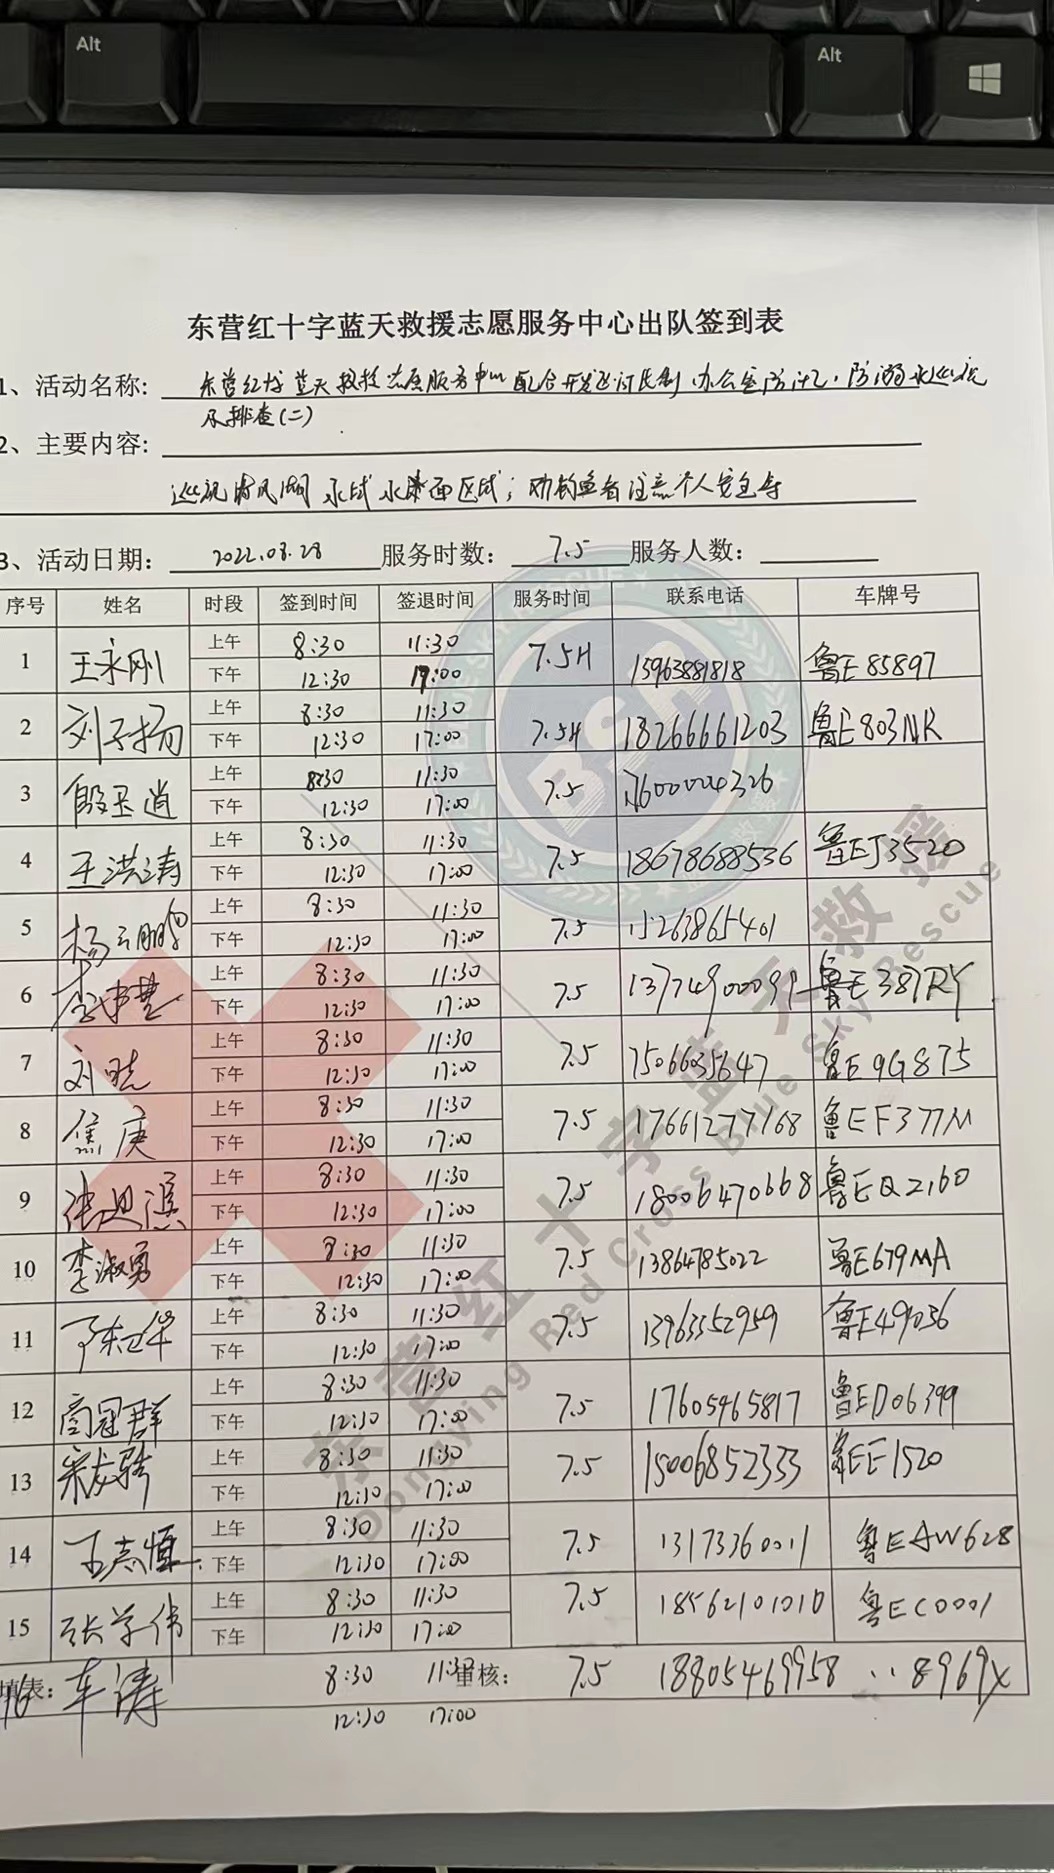 Alt
Alt
东营红十字蓝天救援志愿服务中心出队签到表
1、活动名称: 东营红十字蓝天救援志愿服务中心配合开发 办公室防汛、防溺水巡视
及排查(二)
2、主要内容:
巡视清风湖水域水面区域;劝钓鱼者注意个人安全等
3、活动日期: 2022.08.28 服务时数: 7.5 服务人数:
序号 姓名 时段 签到时间 签退时间 服务时间 联系电话 车牌号
1 王永刚 上午 8:30 11:30 7.5H 13963881818 鲁E85897
下午 12:30 17:00
2 刘子扬 上午 8:30 11:30 7.5H 18266661203 鲁E803NR
下午 12:30 17:00
3 殷玉道 上午 8:30 11:30 7.5
下午 12:30 17:00
4 王洪涛 上午 8:30 11:30 7.5 18678688536 鲁EJ3520
下午 12:30 17:00
5 杨云鹏 上午 8:30 11:30 7.5 15263865401
下午 12:30 17:00
6 上午 8:30 11:30 7.5 鲁E387RY
下午 12:30 17:00
7 刘晓 上午 8:30 11:30 7.5 7506635647 鲁E9G875
下午 12:30 17:00
8 焦庚 上午 8:30 11:30 7.5 17661277168 鲁EF377M
下午 12:30 17:00
9 张 上午 8:30 11:30 7.5 18006470668 鲁EQ2160
下午 12:30 17:00
10 李淑勇 上午 8:30 11:30 7.5 13864785022 鲁E679MA
下午 12:30 17:00
11 陈卫华 上午 8:30 11:30 7.5 13963552959 鲁E49036
下午 12:30 17:00
12 商冠群 上午 8:30 11:30 7.5 17605465817 鲁ED06399
下午 12:30 17:00
13 宋龙骑 上午 8:30 11:30 7.5 15006852333 鲁EE1520
下午 12:30 17:00
14 王志恒 上午 8:30 11:30 7.5 13173360011 鲁EAW628
下午 12:30 17:00
15 张学伟 上午 8:30 11:30 7.5 18562101010 鲁EC0001
下午 12:30 17:00
填表: 16 车涛 8:30 11:30 审核: 7.5 18805469958 ··8969X
12:30 17:00
东营红十字蓝天救援
Dongying Red Cross Blue Sky Rescue
BSR